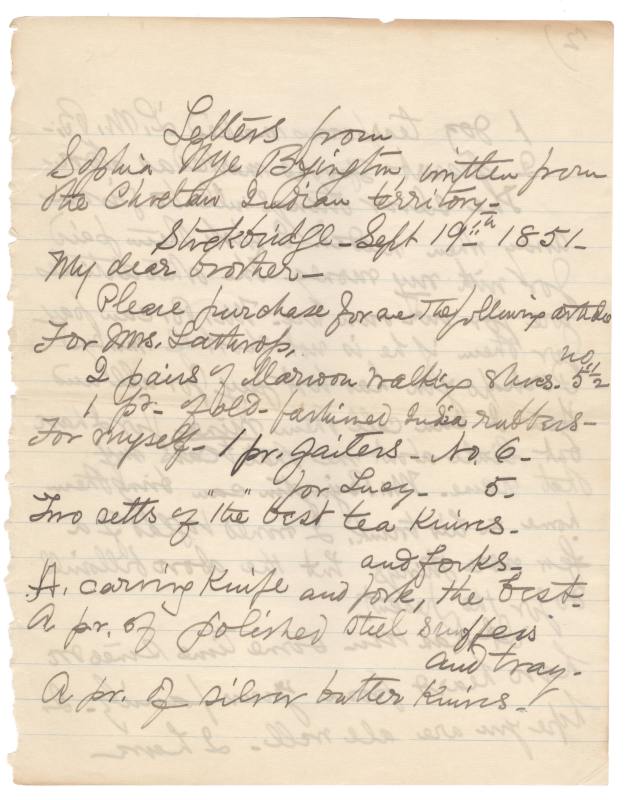 Letters from
Sophia Nye Byington, written from
the Choctaw Indian territory-
Stockbridge - Sept 19th 1851-
My dear brother-
Please purchase for me the following articles
For Mrs. Lathrop,
2 pairs of Maroon walking shoes. no. 5 1/2
1 pr- of old-fashioned India rubbers-
For myself- 1 pr. gaiters - No. 6-
" " for Lucy- 5-
Two setts of the best tea Knives-
and forks-
A. carving Knife and fork, the best-
A pr. of polished steel snuffers
and tray-
A pr. of silver butter Knives-